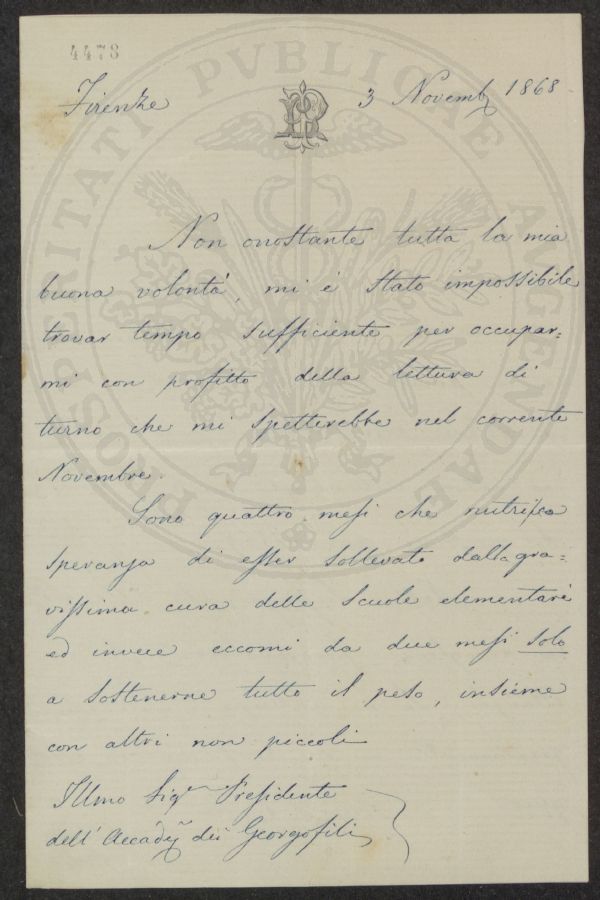 4478
Firenze 3 Novemb. 1868
Non onostante tutta la mia
buona volontà, mi è stato impossibile
trovar tempo sufficiente per occupar=
mi con profitto della lettura di
turno che mi spetterebbe nel corrente
Novembre.
Sono quattro mesi che nutrisco
speranza di esser sollevato dalla gra=
vissima cura delle Scuole elementari
ed invece eccomi da due mesi solo
a sostenerne tutto il peso, insieme
con altri non piccoli
Illmo Sigr Presidente
dell'Accad. dei Georgofili
PROSPERITATI PVBLICAE AVGENDAE